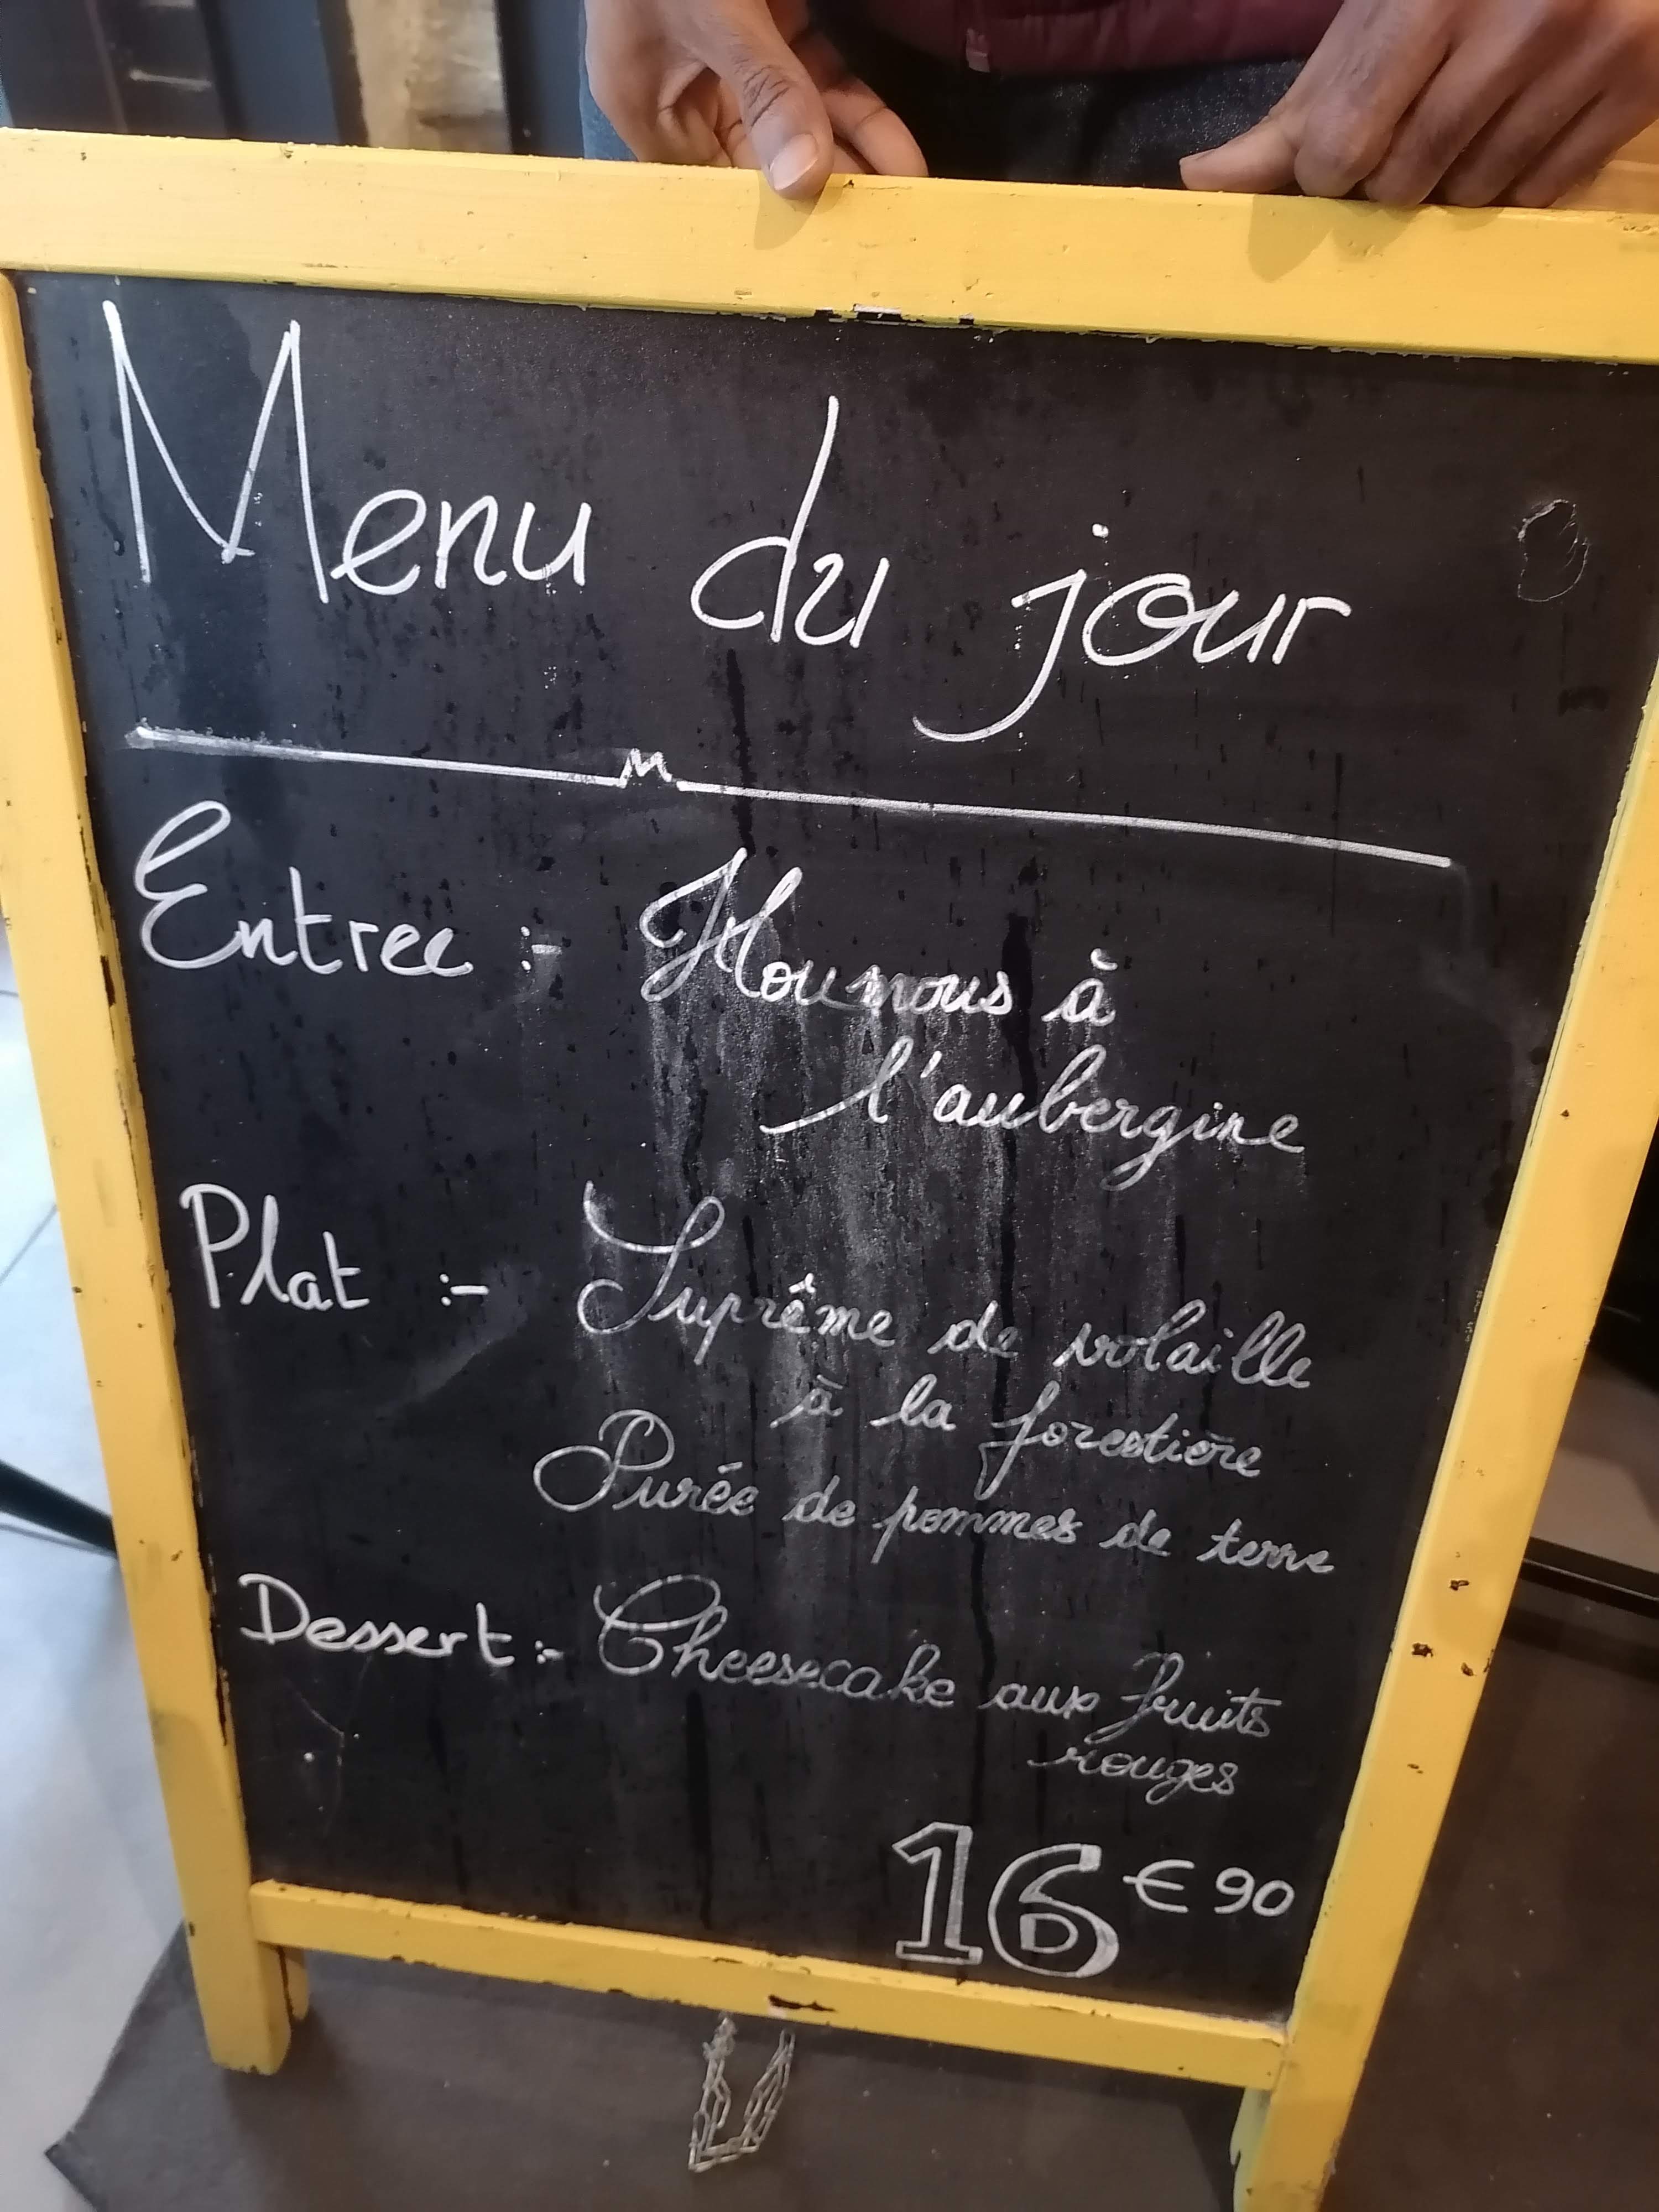 Menu du jour
Entree :- Houmous à
l'aubergine
Plat :- Suprême de volaille
à la forestière
Purée de pommes de terre
Dessert :- Cheesecake aux fruits
rouges
16 € 90